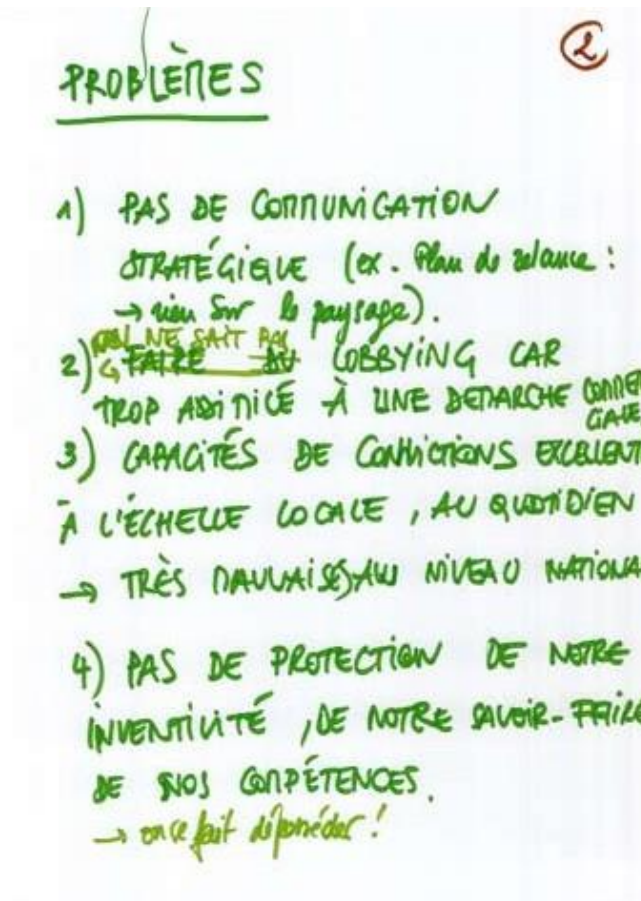 2
PROBLÈMES
1) PAS DE COMMUNICATION
STRATÉGIQUE (ex. Plan de relance :
→ rien sur le paysage).
ON NE SAIT PAS
2) FAIRE DU LOBBYING CAR
TROP ASSIMILÉ À UNE DEMARCHE COMMER
CIALE
3) CAPACITÉS DE CONVICTIONS EXCELLENT
À L'ÉCHELLE LOCALE, AU QUOTIDIEN
→ TRÈS MAUVAISES AU NIVEAU NATIONA
4) PAS DE PROTECTION DE NOTRE
INVENTIVITÉ, DE NOTRE SAVOIR-FAIRE
DE NOS COMPÉTENCES.
→ on se fait déposséder !